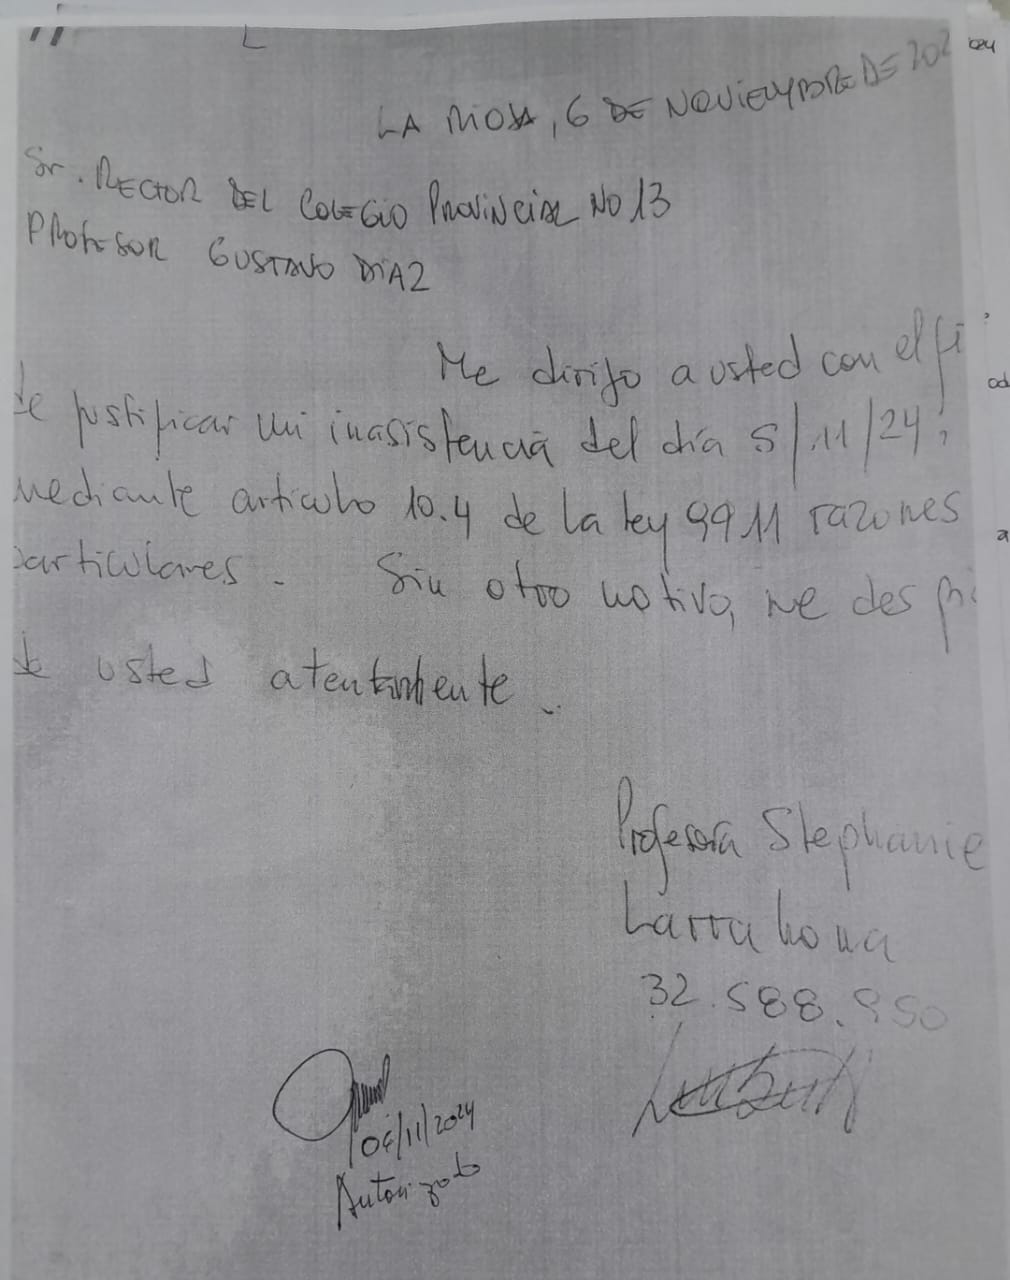 LA RIOJA, 6 DE NOVIEMBRE DE 202
Sr. RECTOR DEL COLEGIO PROVINCIAL NO 13
PROFESOR GUSTAVO DIAZ
Me dirijo a usted con el fi
de justificar mi inasistencia del día 5/11/24,
mediante articulo 10.4 de la ley 9911 razones
particulares. Sin otro motivo, me despi
de usted atentamente.
Profesora Stephanie
Larrahona
32.588.950
06/11/2024
Autorizado